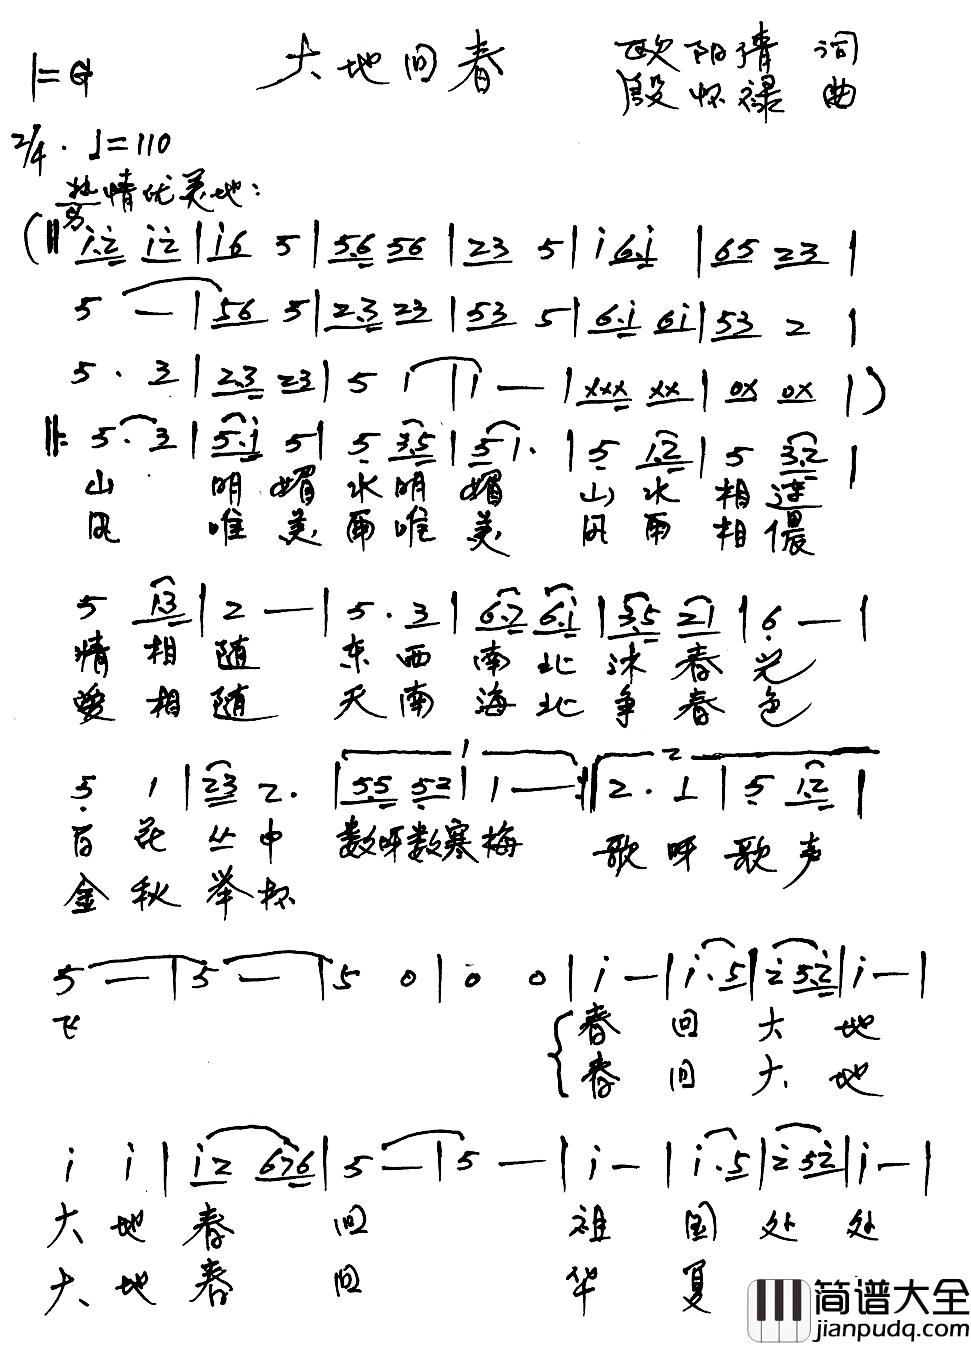 大地回春
欧阳清 词
1=G
殷怀禄 曲
2/4 . ♩=110
热情优美地:
(‖ i.2 i2 | i6 5 | 5.6 56 | 23 5 | i 6.i | 65 23 |
5 — | 56 5 | 2.3 23 | 53 5 | 6.i 6i | 53 2 |
5 . 3 | 2.3 23 | 5 1 | 1 — | xxx xx | 0x 0x | )
‖: 5 . 3 | 5.i 5 | 5 3.5 | 5 1. | 5 1.2 | 5 3.2 |
山 明 媚 水 明 媚 山 水 相 连
风 唯 美 雨 唯 美 风 雨 相
5 1.3 | 2 — | 5 . 3 | 6.7 6.i | 3.5 21 | 6 — |
情 相 随 东 西 南 北 沐 春 光
爱 相 随 天 南 海 北 争 春 色
1 2
5 1 | 23 2. | 5.5 52 | 1 — :‖ 2 . 1 | 5 1.2 |
百 花 丛 中 数呀数寒梅 歌 呀 歌 声
金 秋 举 杯
5 — | 5 — | 5 0 | 0 0 | i — | i . 5 | 2 5.2 | i — |
飞 春 回 大 地
春 回 大 地
i i | i2 676 | 5 — | 5 — | i — | i . 5 | 2 52 | i — |
大 地 春 回 祖 国 处 处
大 地 春 回 华 夏
简谱大全
jianpudq.com